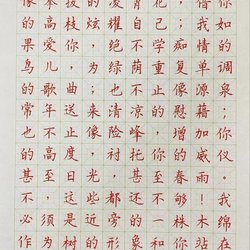 像攀援的凌霄花，借你
的高枝炫耀自己；我如
果爱你，绝不学痴情的
鸟儿，为绿荫重复单调
的歌曲；也不止像泉源；
常年送来清凉的慰藉；
也不止像险峰，增加你
的高度，衬托你的威仪。
甚至日光，甚至春雨！
不，这些都还不够！我
必须是近旁的一株木棉
作为树的形象和你站在